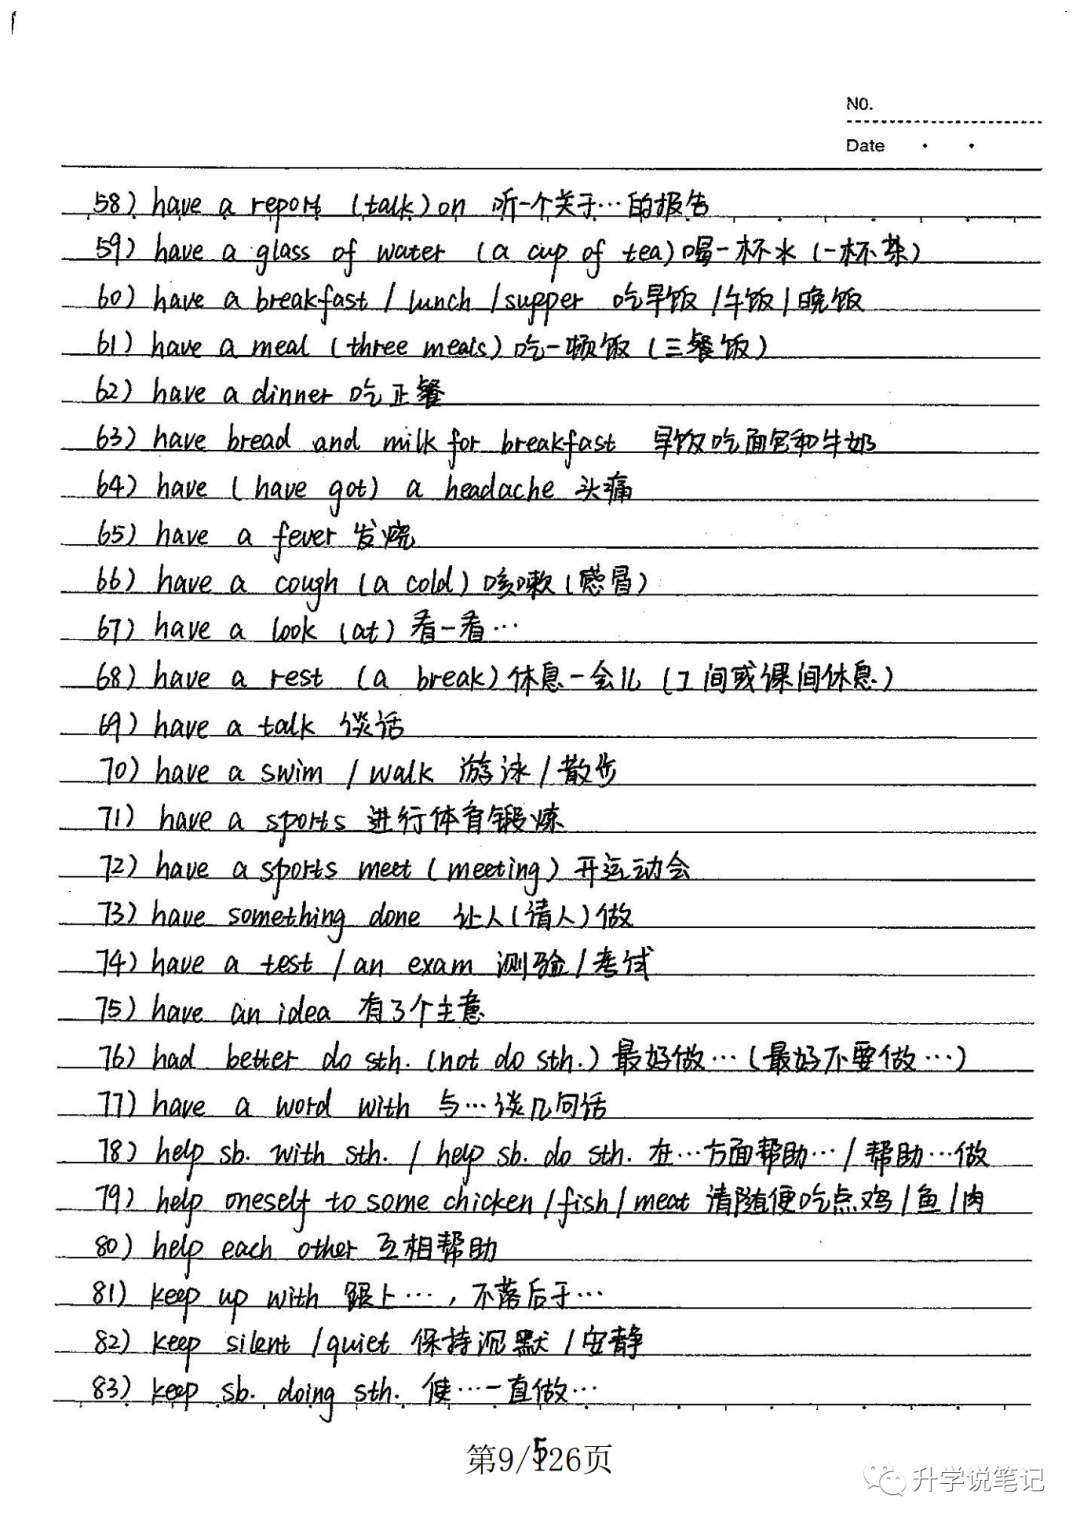 NO.
Date
58) have a report (talk) on 听一个关于…的报告
59) have a glass of water (a cup of tea) 喝一杯水 (一杯茶)
60) have a breakfast / lunch / supper 吃早饭 / 午饭 / 晚饭
61) have a meal (three meals) 吃一顿饭 (三餐饭)
62) have a dinner 吃正餐
63) have bread and milk for breakfast 早饭吃面包和牛奶
64) have (have got) a headache 头痛
65) have a fever 发烧
66) have a cough (a cold) 咳嗽 (感冒)
67) have a look (at) 看一看…
68) have a rest (a break) 休息一会儿 (工间或课间休息)
69) have a talk 谈话
70) have a swim / walk 游泳 / 散步
71) have a sports 进行体育锻炼
72) have a sports meet (meeting) 开运动会
73) have something done 让人 (请人) 做
74) have a test / an exam 测验 / 考试
75) have an idea 有了个主意
76) had better do sth. (not do sth.) 最好做… (最好不要做…)
77) have a word with 与…谈几句话
78) help sb. with sth. / help sb. do sth. 在…方面帮助… / 帮助…做
79) help oneself to some chicken / fish / meat 请随便吃点鸡 / 鱼 / 肉
80) help each other 互相帮助
81) keep up with 跟上…, 不落后于…
82) keep silent / quiet 保持沉默 / 安静
83) keep sb. doing sth. 使…一直做…
5
第9/126页
升学说笔记